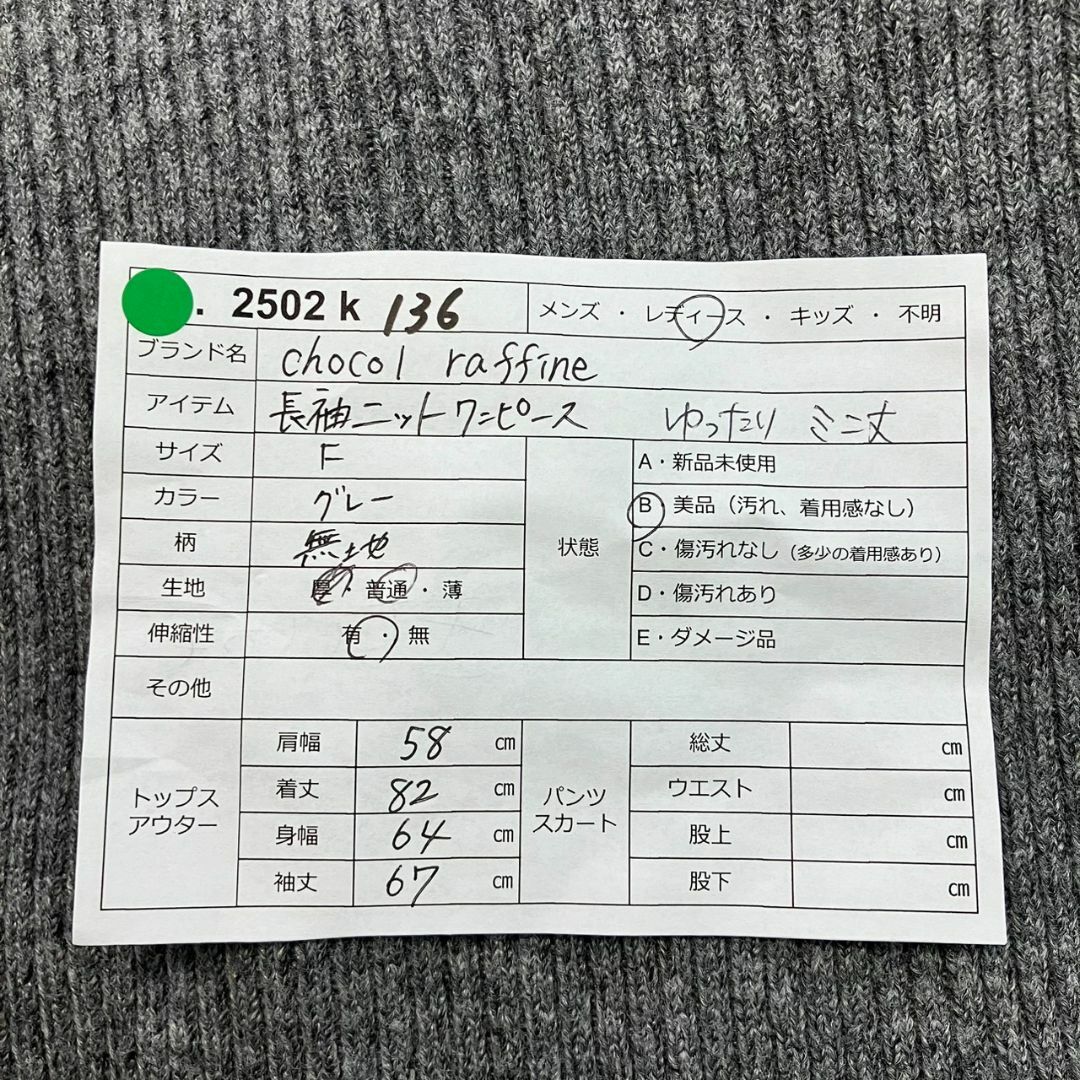 . 2502 k 136 メンズ ・ レディース ・ キッズ ・ 不明
ブランド名 chocol raffine
アイテム 長袖ニットワンピース ゆったり ミニ丈
サイズ F
カラー グレー
柄 無地
生地 厚・普通・薄
伸縮性 有・無
状態
A・新品未使用
B・美品（汚れ、着用感なし）
C・傷汚れなし（多少の着用感あり）
D・傷汚れあり
E・ダメージ品
その他
トップス
アウター
肩幅 58 ㎝
着丈 82 ㎝
身幅 64 ㎝
袖丈 67 ㎝
パンツ
スカート
総丈 ㎝
ウエスト ㎝
股上 ㎝
股下 ㎝